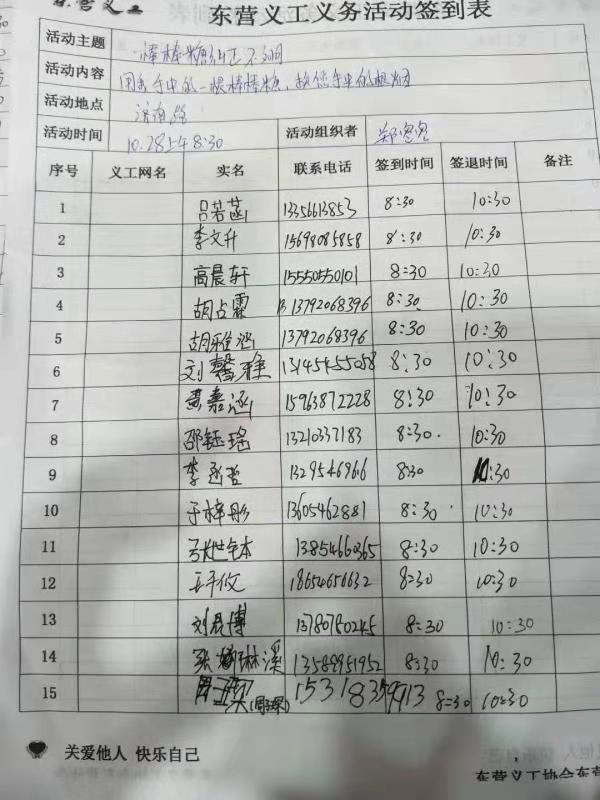 东营义工
东营义工义务活动签到表
活动主题 棒棒糖纠正不文明
活动内容 用我手中的一根棒棒糖,救您手中的烟
活动地点 滨海
活动时间 10.28上午8:30 活动组织者 郑
序号 义工网名 实名 联系电话 签到时间 签退时间 备注
1 吕若菡 13356613853 8:30 10:30
2 李文升 15698085858 8:30 10:30
3 高晨轩 15550550101 8:30 10:30
4 胡占霖 13792068396 8:30 10:30
5 胡雅涵 13792068396 8:30 10:30
6 刘馨雅 13145455058 8:30 10:30
7 黄嘉涵 15963872228 8:30 10:30
8 邵钰瑶 13210337183 8:30. 10:30
9 李 8:30 10:30
10 于梓彤 13605462881 8:30 10:30
11 13854660365 8:30 10:30
12 18650656632 8:30 10:30
13 刘晨博 13780750245 8:30 10:30
14 张琳溪 13589951952 8:30 10:30
15 15318359913 8:30 10:30
关爱他人 快乐自己
东营义工协会东营